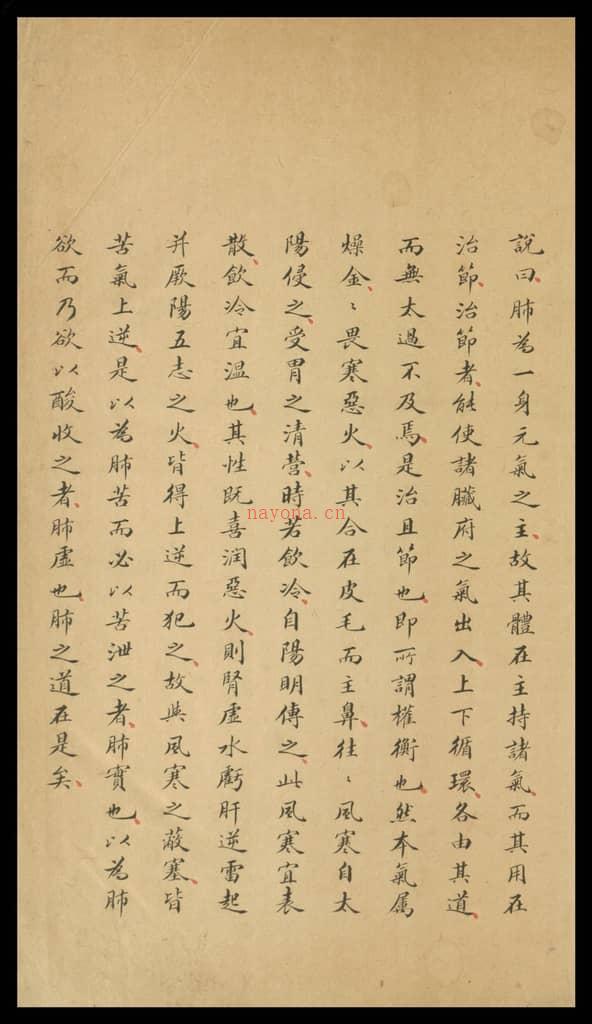 說曰肺為一身元氣之主故其體在主持諸氣而其用在
治節治節者能使諸臟府之氣出入上下循環各由其道
而無太過不及焉是治且節也即所謂權衡也然本氣属
燥金〻畏寒惡火以其合在皮毛而主鼻往〻風寒自太
陽侵之受胃之清營時若飲冷自陽明傳之此風寒宜表
散飲冷宜温也其性既喜润惡火則腎虛水虧肝逆雷起
并厥陽五志之火皆得上逆而犯之故與風寒之蔽塞皆
苦氣上逆是以為肺苦而必以苦泄之者肺實也以為肺
欲而乃欲以酸收之者肺虛也肺之道在是矣
nayona.cn